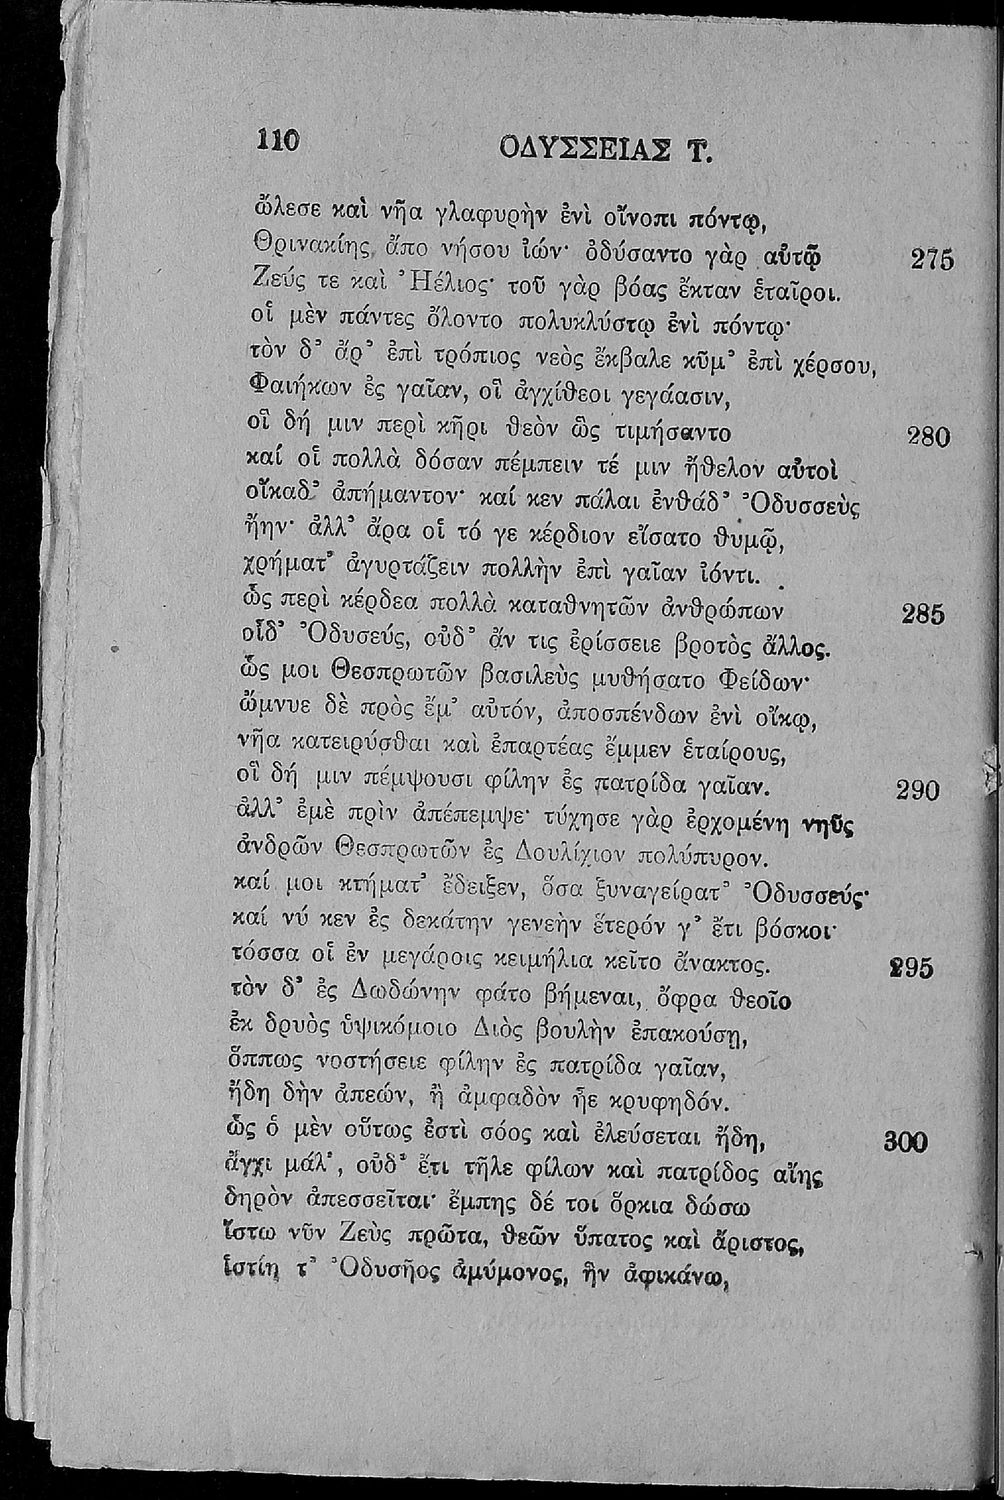 110
ΟΔΥΣΣΕΙΑΣ Τ.
ὤλεσε καὶ νῆα γλαφυρὴν ἐνὶ οἴνοπι πόντῳ,
Θρινακίης ἄπο νήσου ἰών· ὀδύσαντο γὰρ αὐτῷ 275
Ζεύς τε καὶ Ἠέλιος· τοῦ γὰρ βόας ἔκταν ἑταῖροι.
οἱ μὲν πάντες ὄλοντο πολυκλύστῳ ἐνὶ πόντῳ·
τὸν δ᾽ ἄρ᾽ ἐπὶ τρόπιος νεὸς ἔκβαλε κῦμ᾽ ἐπὶ χέρσου,
Φαιήκων ἐς γαῖαν, οἳ ἀγχίθεοι γεγάασιν,
οἳ δή μιν περὶ κῆρι θεὸν ὣς τιμήσαντο 280
καί οἱ πολλὰ δόσαν πέμπειν τέ μιν ἤθελον αὐτοὶ
οἴκαδ᾽ ἀπήμαντον· καί κεν πάλαι ἐνθάδ᾽ Ὀδυσσεὺς
ἤην· ἀλλ᾽ ἄρα οἱ τό γε κέρδιον εἴσατο θυμῷ,
χρήματ᾽ ἀγυρτάζειν πολλὴν ἐπὶ γαῖαν ἰόντι.
ὣς περὶ κέρδεα πολλὰ καταθνητῶν ἀνθρώπων 285
οἶδ᾽ Ὀδυσεύς, οὐδ᾽ ἄν τις ἐρίσσειε βροτὸς ἄλλος.
ὥς μοι Θεσπρωτῶν βασιλεὺς μυθήσατο Φείδων·
ὤμνυε δὲ πρὸς ἔμ᾽ αὐτόν, ἀποσπένδων ἐνὶ οἴκῳ,
νῆα κατειρύσθαι καὶ ἐπαρτέας ἔμμεν ἑταίρους,
οἳ δή μιν πέμψουσι φίλην ἐς πατρίδα γαῖαν. 290
ἀλλ᾽ ἐμὲ πρὶν ἀπέπεμψε· τύχησε γὰρ ἐρχομένη νηῦς
ἀνδρῶν Θεσπρωτῶν ἐς Δουλίχιον πολύπυρον.
καί μοι κτήματ᾽ ἔδειξεν, ὅσα ξυναγείρατ᾽ Ὀδυσσεύς·
καί νύ κεν ἐς δεκάτην γενεὴν ἕτερόν γ᾽ ἔτι βόσκοι·
τόσσα οἱ ἐν μεγάροις κειμήλια κεῖτο ἄνακτος. 295
τὸν δ᾽ ἐς Δωδώνην φάτο βήμεναι, ὄφρα θεοῖο
ἐκ δρυὸς ὑψικόμοιο Διὸς βουλὴν ἐπακούσῃ,
ὅππως νοστήσειε φίλην ἐς πατρίδα γαῖαν,
ἤδη δὴν ἀπεών, ἢ ἀμφαδὸν ἦε κρυφηδόν.
ὣς ὁ μὲν οὕτως ἐστὶ σόος καὶ ἐλεύσεται ἤδη, 300
ἄγχι μάλ᾽, οὐδ᾽ ἔτι τῆλε φίλων καὶ πατρίδος αἴης
δηρὸν ἀπεσσεῖται· ἔμπης δέ τοι ὅρκια δώσω
ἴστω νῦν Ζεὺς πρῶτα, θεῶν ὕπατος καὶ ἄριστος,
ἱστίη τ᾽ Ὀδυσῆος ἀμύμονος, ἣν ἀφικάνω,